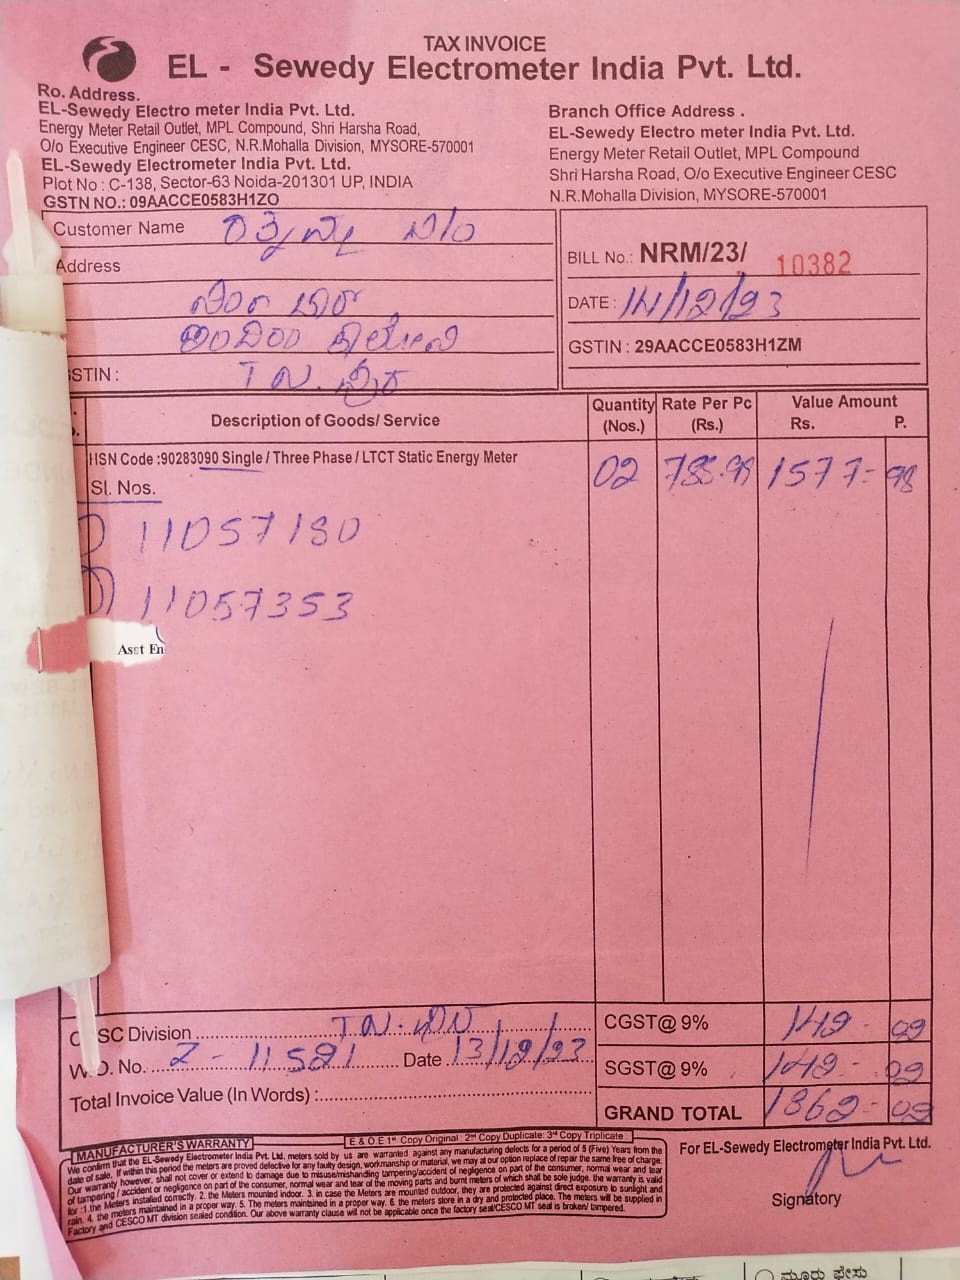 TAX INVOICE
EL - Sewedy Electrometer India Pvt. Ltd.
Ro. Address.
EL-Sewedy Electro meter India Pvt. Ltd.
Energy Meter Retail Outlet, MPL Compound, Shri Harsha Road,
O/o Executive Engineer CESC, N.R.Mohalla Division, MYSORE-570001
EL-Sewedy Electrometer India Pvt. Ltd.
Plot No : C-138, Sector-63 Noida-201301 UP, INDIA
GSTN NO.: 09AACCE0583H1ZO
Branch Office Address .
EL-Sewedy Electro meter India Pvt. Ltd.
Energy Meter Retail Outlet, MPL Compound
Shri Harsha Road, O/o Executive Engineer CESC
N.R.Mohalla Division, MYSORE-570001
Customer Name
Address
STIN :
BILL No.: NRM/23/ 10382
DATE : 14/12/23
GSTIN : 29AACCE0583H1ZM
Description of Goods/ Service
Quantity (Nos.)
Rate Per Pc (Rs.)
Value Amount
Rs. P.
HSN Code :90283090 Single / Three Phase / LTCT Static Energy Meter
02 1577- 98
Sl. Nos.
11057180
11057353
Asst En
SC Division
CGST@ 9%
O. No. Z - 11581 Date 13/12/23
SGST@ 9%
Total Invoice Value (In Words) :
GRAND TOTAL 1862-
E & O.E 1st Copy Original : 2nd Copy Duplicate: 3rd Copy Triplicate :
MANUFACTURER'S WARRANTY
We confirm that the EL-Sewedy Electrometer India Pvt. Ltd. meters sold by us are warranted against any manufacturing defects for a period of 5 (Five) Years from the
date of sale. If within this period the meters are proved defective for any faulty design, workmanship or material, we may at our option replace of repair the same free of charge.
Our warranty however, shall not cover or extend to damage due to misuse/mishandling tampering/accident of negligence on part of the consumer, normal wear and tear
of tampering / accident or negligence on part of the consumer, normal wear and tear of the moving parts and burnt meters of which shall be sole judge. the warranty is valid
for :1.the Meters installed correctly. 2. the Meters mounted indoor. 3. in case the Meters are mounted outdoor, they are protected against direct exposure to sunlight and
rain. 4. the meters maintained in a proper way. 5. The meters maintsined in a proper way. 6. the meters store in a dry and protected place. The meters will be supplied in
Factory and CESCO MT division sealed condition. Our above warranty clause will not be applicable once the factory seal/CESCO MT seal is broken/ tampered.
For EL-Sewedy Electrometer India Pvt. Ltd.
Signatory
ಮೂರು ಫೇಸು